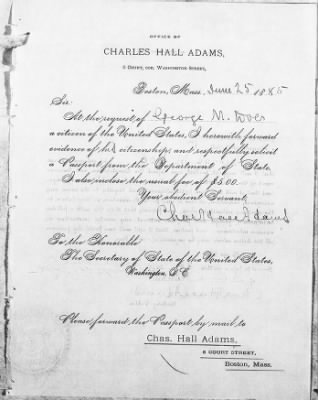 OFFICE OF
CHARLES HALL ADAMS,
5 COURT, COR. WASHINGTON STREET,
Boston, Mass. June 25 1885
Sir:
At the request of George N.
a citizen of the United States, I herewith forward
evidence of his citizenship, and respectfully solicit
a Passport from the Department of State.
I also inclose the usual fee of $5.00.
Your obedient Servant,
Chas Hall Adams
To the Honorable
The Secretary of State of the United States,
Washington, D.C.
Please forward the Passport by mail to
Chas. Hall Adams,
5 COURT STREET,
Boston, Mass.